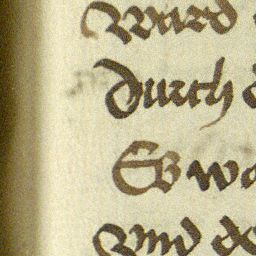 Ward
Durch
Es wa
Vnd de